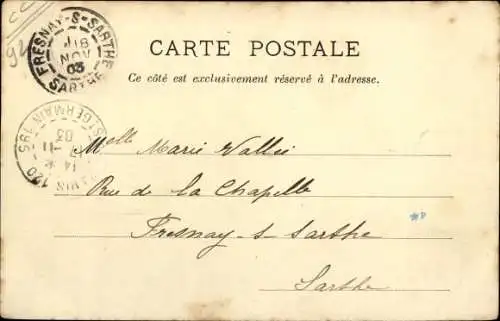 CC
92
FRESNAY-S-SARTHE
18
NOV
03
SARTHE
CARTE POSTALE
Ce côté est exclusivement réservé à l'adresse.
Melle Marie Vallée
Rue de la Chapelle
Fresnay-s-Sarthe
Sarthe